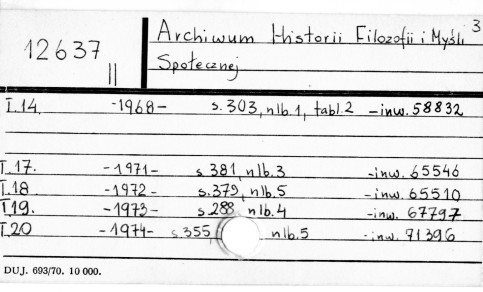 12637 II
Archiwum Historii Filozofii i Myśli 3
Społecznej
T.14. -1968- s.303, nlb.1, tabl.2 -inw.58832
T.17. -1971- s.381, nlb.3 -inw. 65546
T.18 -1972- s.379, nlb.5 -inw. 65510
T.19. -1973- s.288, nlb.4 -inw. 67797
T.20 -1974- s.355, nlb.5 -inw. 71396
DUJ. 693/70. 10 000.